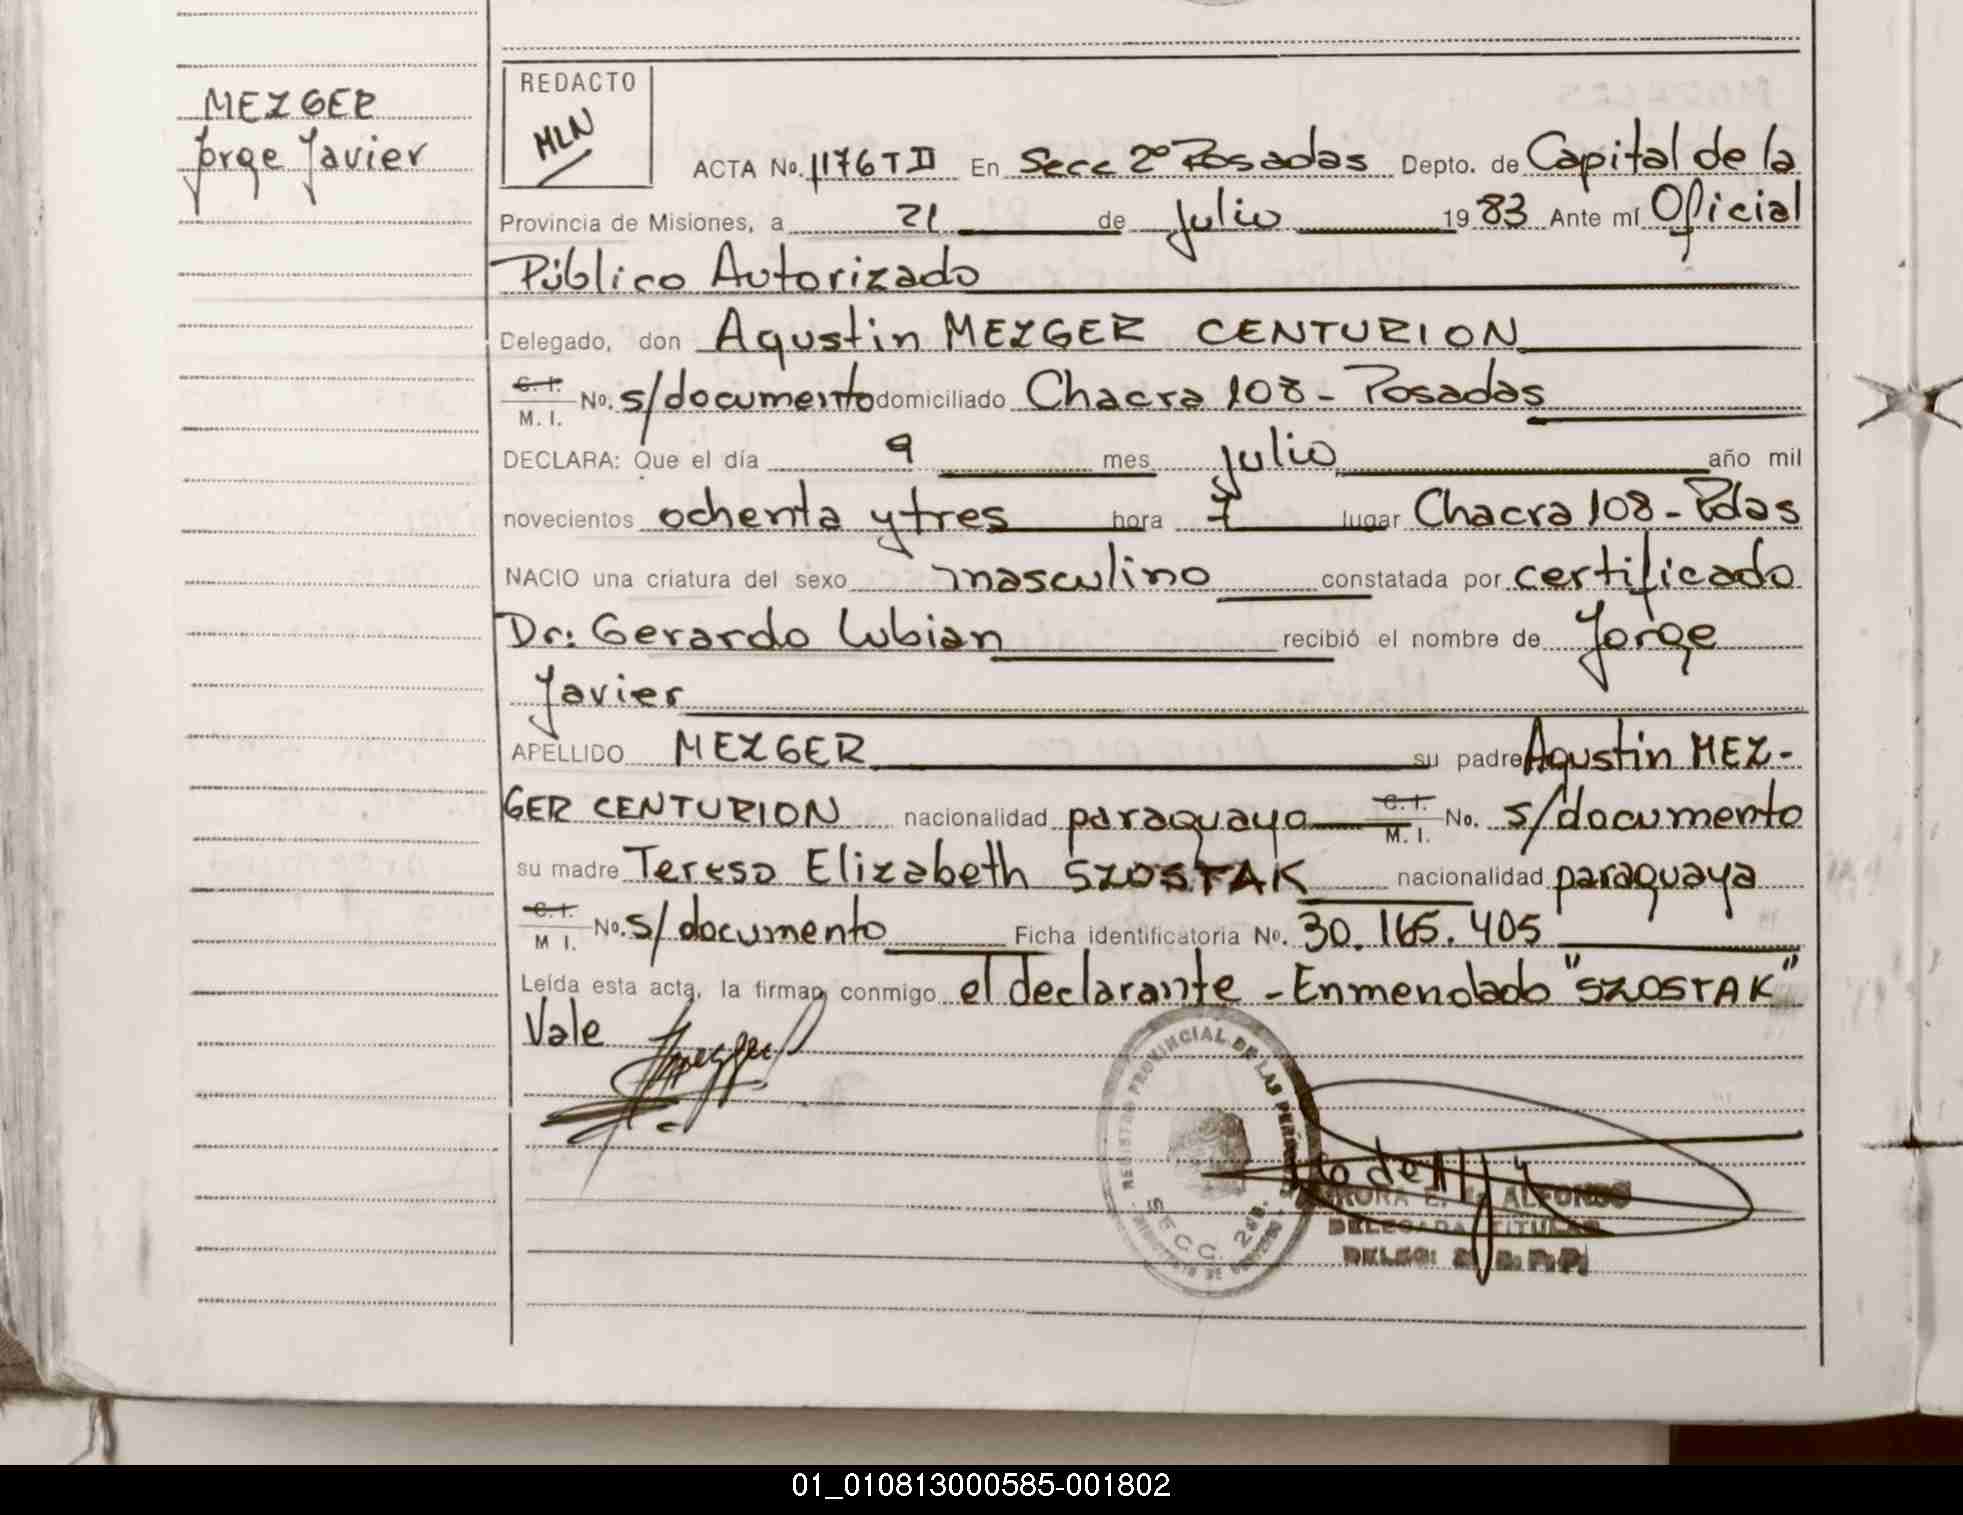 MEZGER
Jorge Javier
REDACTO
MLN
ACTA No. 1176 T II En Secc 2º Posadas Depto. de Capital de la
Provincia de Misiones, a 21 de julio 1983 Ante mí Oficial
Público Autorizado
Delegado, don Agustin MEZGER CENTURION
C. I. / M. I. No. s/documento domiciliado Chacra 108 - Posadas
DECLARA: Que el día 9 mes julio año mil
novecientos ochenta y tres hora 7 lugar Chacra 108 - Pdas
NACIO una criatura del sexo masculino constatada por certificado
Dr: Gerardo Lubian recibió el nombre de Jorge
Javier
APELLIDO MEZGER su padre Agustin MEZ-
GER CENTURION nacionalidad paraguayo C. I. / M. I. No. s/documento
su madre Teresa Elizabeth SZOSTAK nacionalidad paraguaya
C. I. / M I. No. s/documento Ficha identificatoria No. 30.165.405
Leída esta acta, la firman conmigo el declarante - Enmendado "SZOSTAK"
Vale
REGISTRO PROVINCIAL DE LAS PERSONAS
SECC. 2da.
ALFONSO
DELEGADA TITULAR
01_010813000585-001802